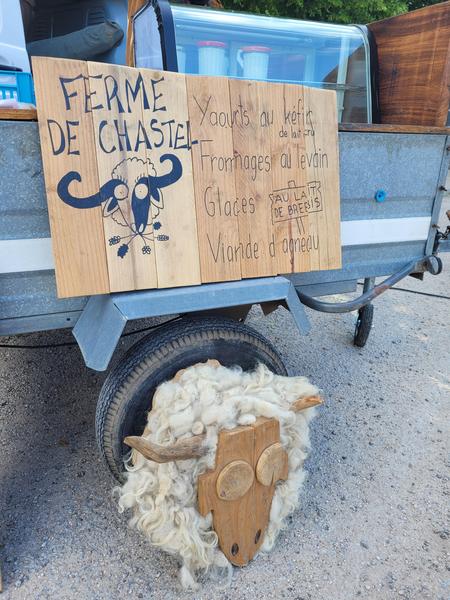 FERME
DE CHASTEL
Yaourts au kéfir
de lait cru
Fromages au levain
Glaces
AU LAIT
DE BREBIS
Viande d'agneau